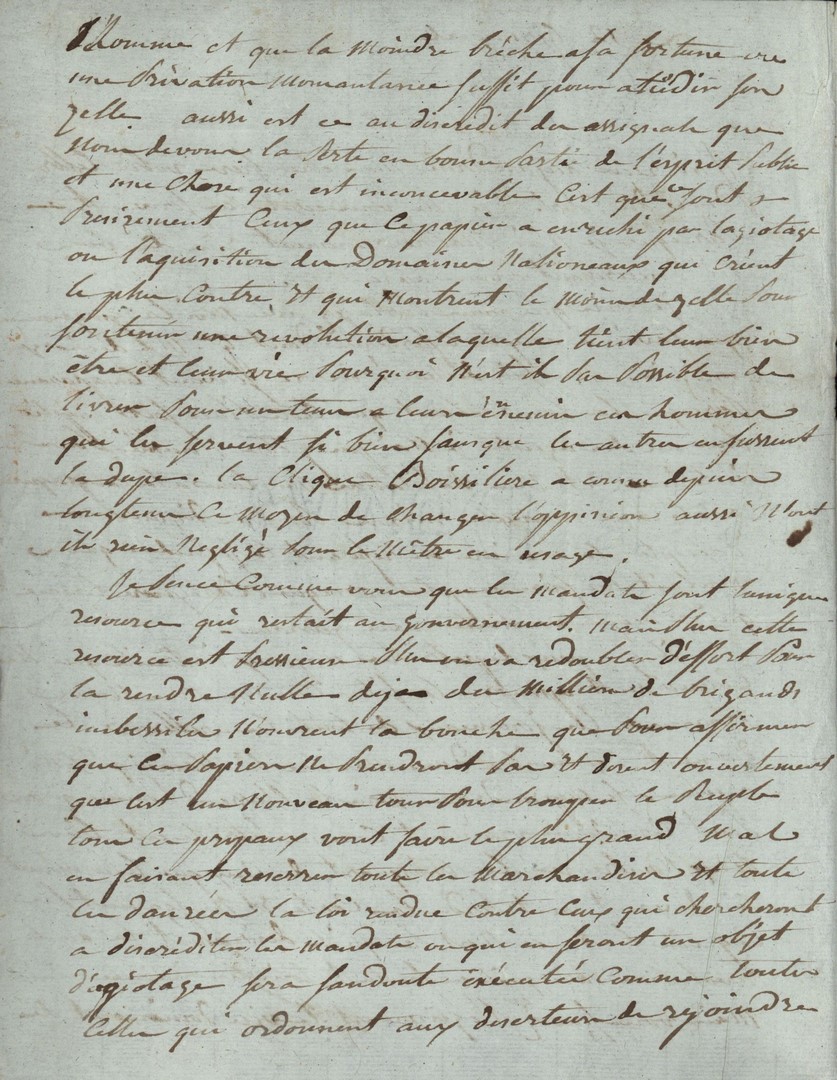 l'homme et que la moindre brèche a sa fortune ou
une Privation momantanée suffit pour atiédir son
zelle aussi est ce au discredit des assignats que
Nous devons la Perte en bonne Partie de l'esprit Public
et une chose qui est inconcevable C'est que ce sont
Presisement Ceux que Ce papier a enrichi par lagiotage
ou l'aquisition des Domaines Nationeaux qui crient
le plus Contre, Et qui Montrent le Moins de zelle Pour
soutenir une revolution a laquelle tient leur bien
être et leur vie Pourquoi N'est il Pas Possible de
livrer Pour un tems a leurs ennemis ces hommes
qui les servent si bien sans que les autres en fussent
la dupe. la Clique Boissiliere a connu depuis
longtems Ce Moyen de changer l'oppinion aussi N'ont
ils rien Negligé Pour le Mêtre en usage.
Je Pence Comme vous que les mandats sont lunique
resource qui restait au gouvernement. Mais Plus cette
resource est Pressieuse Plus on va redoubler d'effort Pour
la rendre Nulle deja des Milliers de brigands
imbessiles N'ouvrent la bouche que Pour affirmer
que Ce Papier Ne Prendront Pas Et disent ouvertement
que c'est un Nouveau tour Pour tromper le Peuple
tous Ces propaux vont faire le plus grand Mal
en faisant reserrer toute les Marchandises Et toute
les danrées la loi rendue Contre Ceux qui chercheront
a discréditer les Mandats ou qui en feront un objet
d'agiotage sera sandoute éxécutée Comme toutes
Celles qui ordonnent aux deserteurs de rejoindre